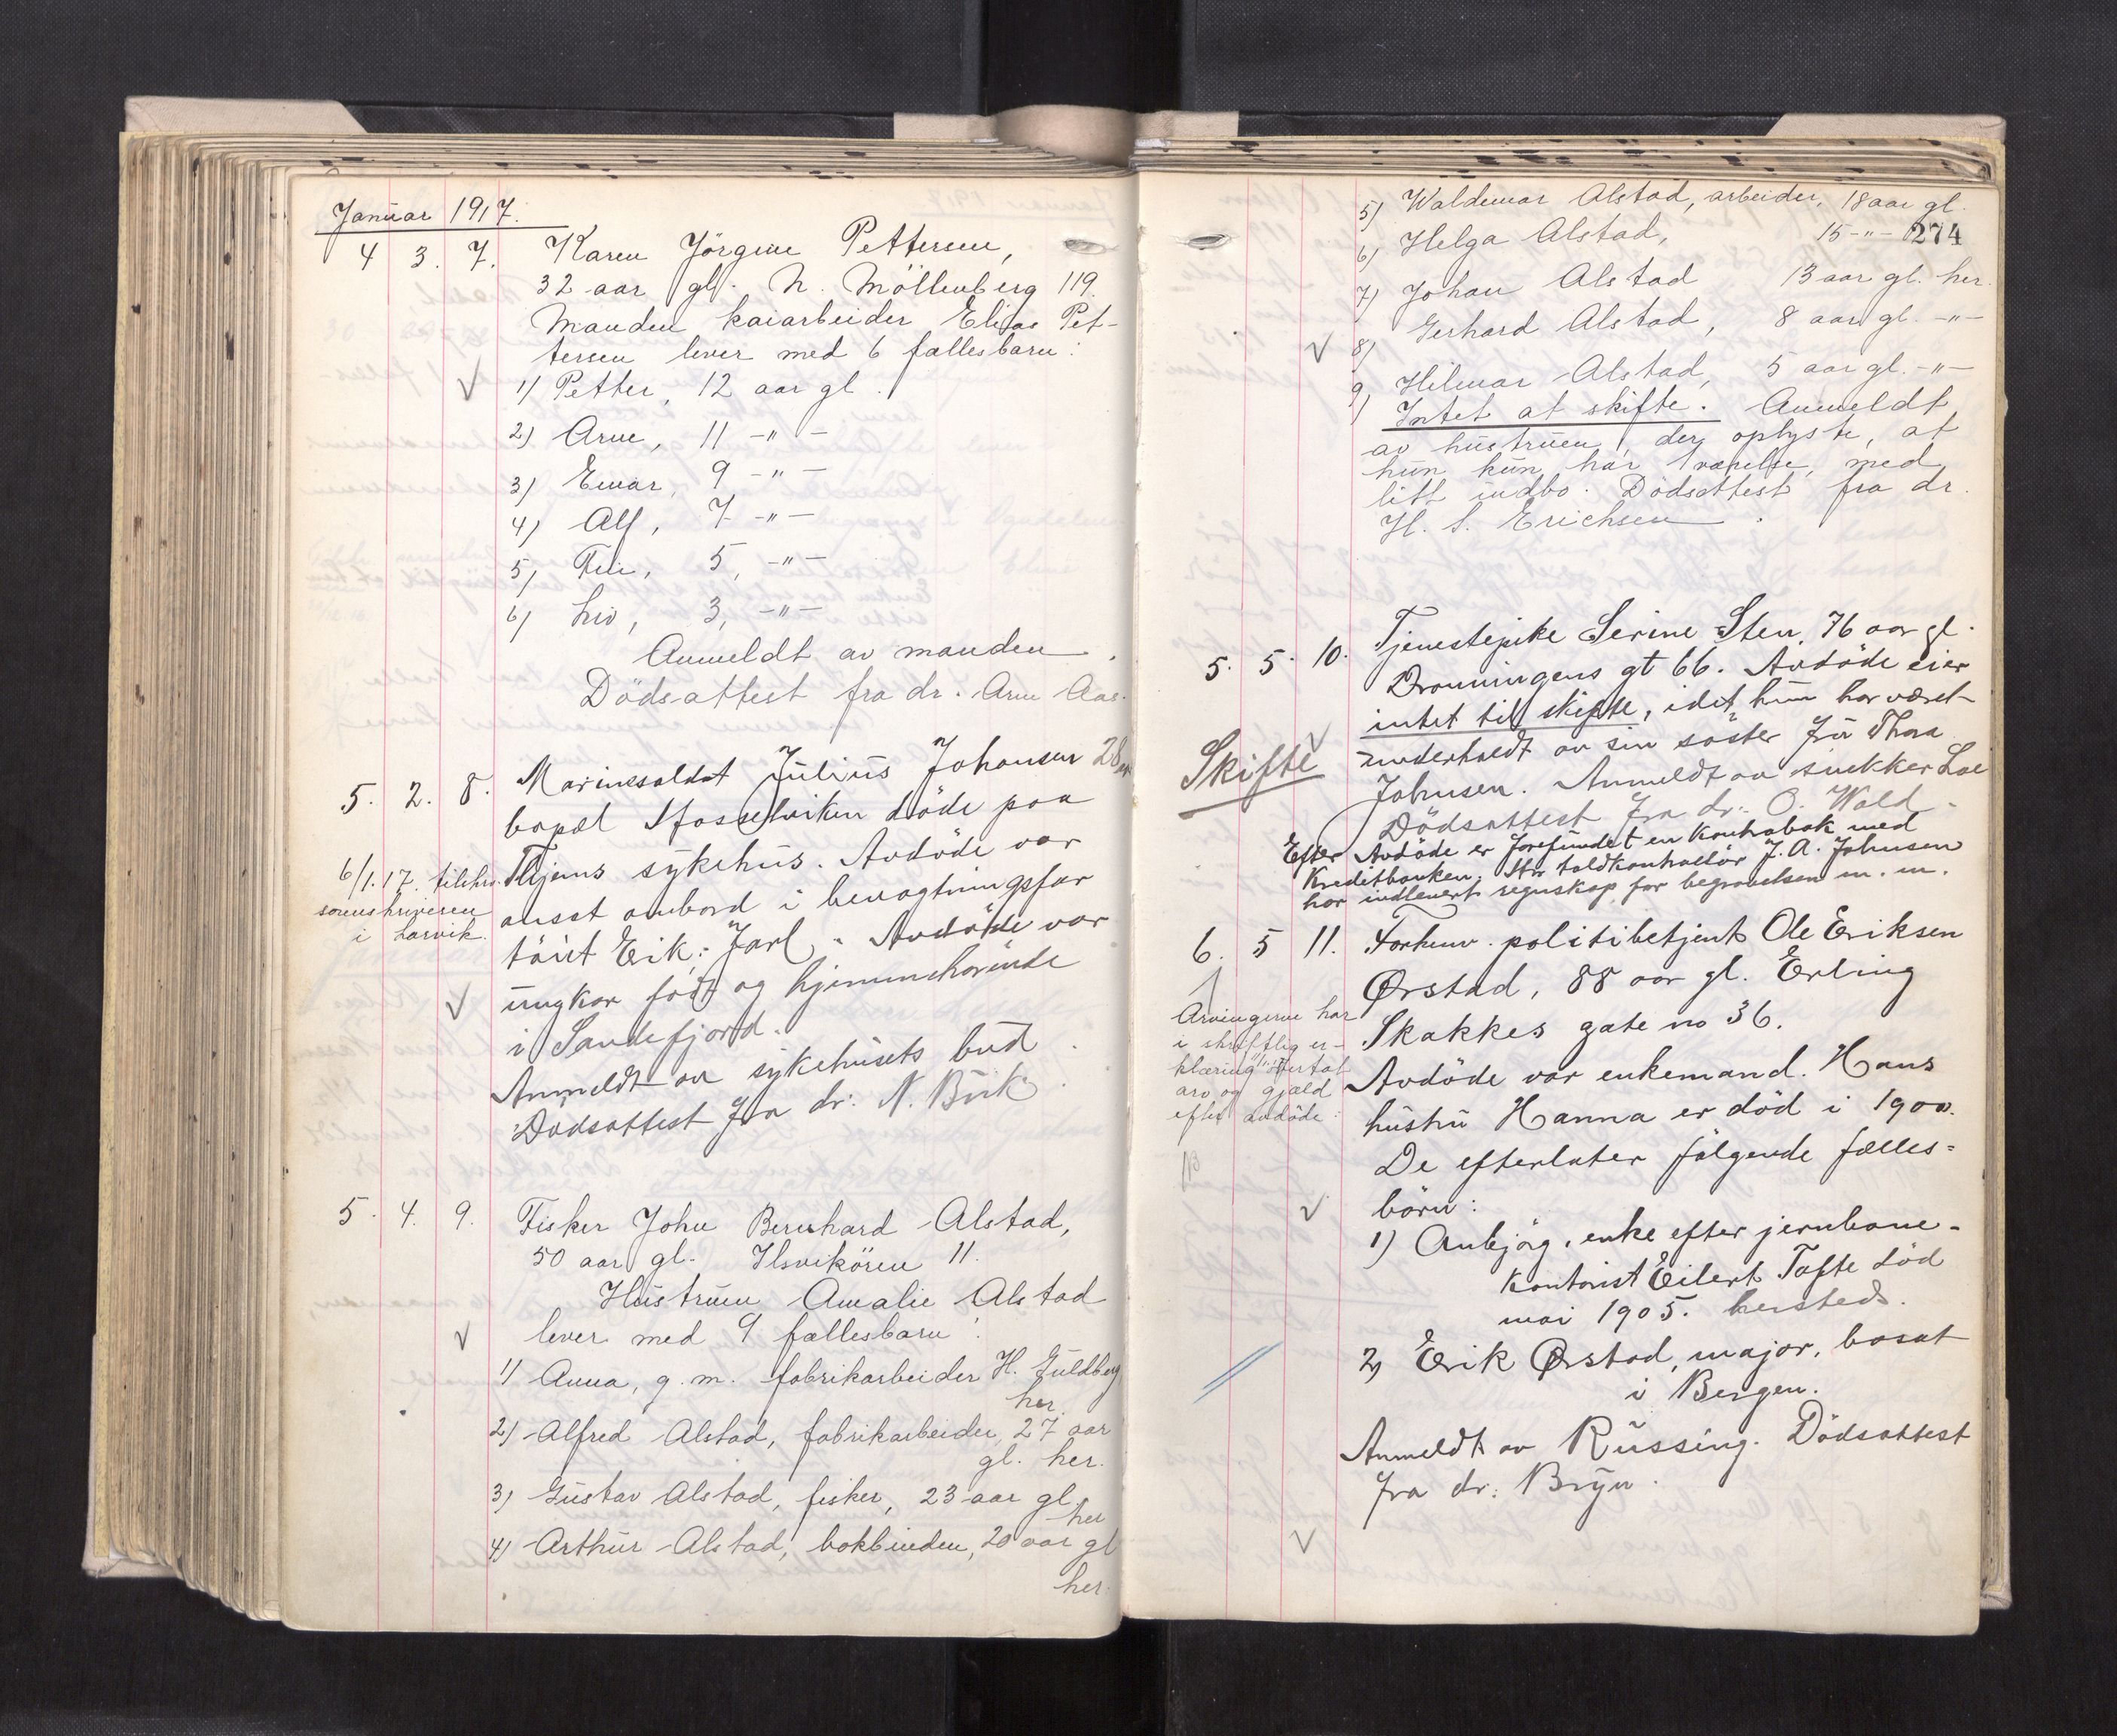 Januar 1917.
4 3. 7. Karen Jörgine Pettersen,
32 aar gl. N. Möllenberg 119.
Manden kaiarbeider Elias Pet-
tersen lever med 6 fællesbarn:
1) Petter, 12 aar gl.
2) Arne, 11 -"-
3) Einar, 9 -"-
4) Alf, 7 -"-
5) 5, -"-
6) Liv, 3, -"-
Anmeldt av manden.
Dödsattest fra dr. Arne Aas.
5. 2. 8. Marinesoldat Julius Johansen 28 aar
bopæl döde paa
6/1.17. tilskr. Thjems sykehus. Avdöde var
sorenskriveren ansat ombord i bevogtningsfar
i Larvik. töiet Erik Jarl. Avdöde var
ungkar födt og hjemmehörende
i Sandefjord.
Anmeldt av sykehusets bud.
Dödsattest fra dr. N. Buk.
5. 4. 9. Fisker John Bernhard Alstad,
50 aar gl. Ilsvikören 11.
Hustruen Amalie Alstad
lever med 9 fællesbarn:
1) Anna, g. m. fabrikarbeider H. Guldberg
her.
2) Alfred Alstad, fabrikarbeider, 27 aar
gl. her.
3) Gustav Alstad, fisker, 23 aar gl.
her
4) Arthur Alstad, bokbinder, 20 aar gl
her.
274
5) Waldemar Alstad, arbeider, 18 aar gl.
6) Helga Alstad, 15 -"-
7) Johan Alstad 13 aar gl. her.
8) Gerhard Alstad, 8 aar gl. -"-
9) Hilmar Alstad, 5 aar gl. -"-
Intet at skifte. Anmeldt
av hustruen, der oplyste, at
hun kun har 1 værelse, med
litt indbo. Dödsattest fra dr.
H. S. Erichsen.
5. 5. 10. Tjenestepike Serine Sten, 76 aar gl.
Dronningens gt 66. Avdöde eier
intet til skifte, idet hun har været
Skifte underholdt av sin söster fru Thora
Johnsen. Anmeldt av snekker Loe
Dödsattest fra dr. O. Wold.
Efter Avdöde er forefundet en kontrabok med
Kreditbanken. Hr toldkontrollör J. A. Johnsen
har indlevert regnskap for begravelsen m. m.
6. 5 11. Forhenv. politibetjent Ole Eriksen
Ørstad, 88 aar gl. Erling
Arvingerne har
i skriftlig er-
klæring frafaldt
arv og gjæld
efter avdöde.
Skakkes gate no 36.
Avdöde var enkemand. Hans
hustru Hanna er död i 1900.
De efterlater følgende fælles=
börn:
1) Anbjörg, enke efter jernbane-
kontorist Eilert Tofte död
mai 1905. hersteds.
2) Erik Ørstad, major, bosat
i Bergen.
Anmeldt av Russing. Dödsattest
fra dr. Bryn.